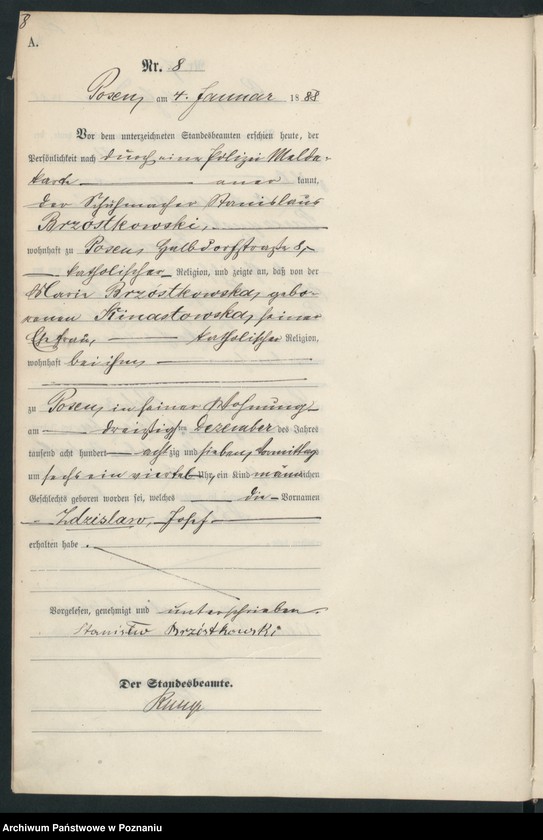 8
A.
Nr. 8
Posen, am 4. Januar 1888
Vor dem unterzeichneten Standesbeamten erschien heute, der
Persönlichkeit nach durch eine Polizei Melde-
karte aner kannt,
der Schuhmacher Stanislaus
Brzóstkowski,
wohnhaft zu Posen, Halbdorfstraße 8,
katholischer Religion, und zeigte an, daß von der
Marie Brzóstkowska, gebo-
renen Kinastowska, seiner
Ehefrau, katholischer Religion,
wohnhaft bei ihm,
zu Posen, in seiner Wohnung
am dreißigsten Dezember des Jahres
tausend acht hundert achtzig und sieben, Vormittags
um sechs ein viertel Uhr, ein Kind männlichen
Geschlechts geboren worden sei, welches die Vornamen
Zdzislaw, Josef
erhalten habe.
Vorgelesen, genehmigt und unterschrieben
Stanisław Brzóstkowski
Der Standesbeamte.
Archiwum Państwowe w Poznaniu